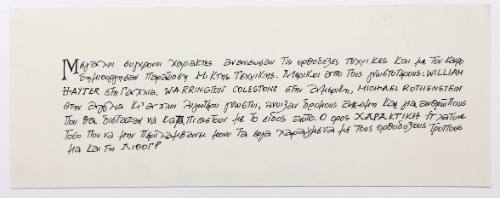 Μεγάλοι σύγχρονοι χαράκτες ανανέωσαν τις ορθόδοξες τεχνικές και με τον καιρό
δημιούργησαν παράδοση μικτής τεχνικής. Μερικοί από τους γνωστότερους: WILLIAM
HAYTER στη Γαλλία, WARRINGTON COLESTONE στην Αμερική, MICHAEL ROTHENSTEIN
στην Αγγλία κι άλλοι λιγώτερο γνωστοί, άνοιξαν δρόμους ακόμη και για ανθρώπους
που θα δίσταζαν να καταπιαστούν με το είδος αυτό. Ο όρος ΧΑΡΑΚΤΙΚΗ πλάτυνε
τόσο που να μην περιλαμβάνει μόνο τα έργα χαραγμένα με τους ορθόδοξους τρόπους
μα και τη ΛΙΘΟΓΡ